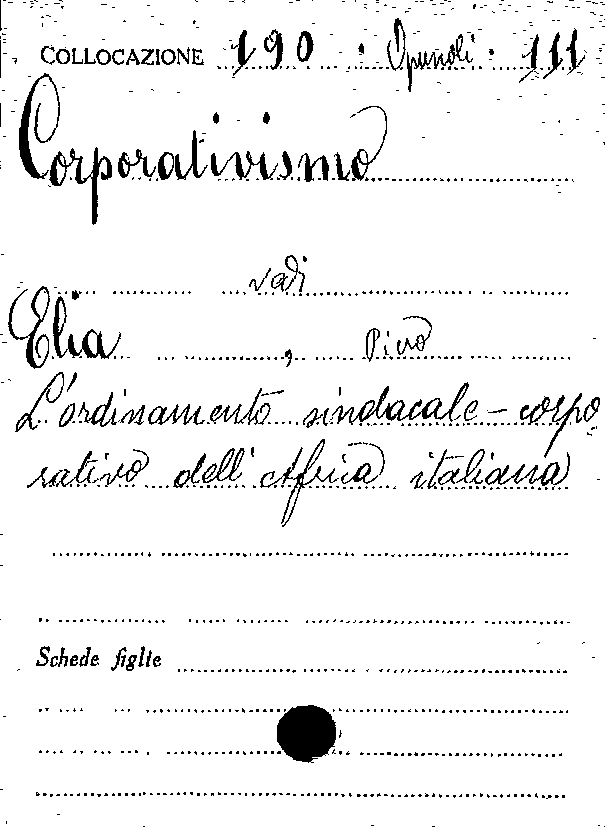 COLLOCAZIONE 190 . Opuscoli . 111
Corporativismo
vedi
Elia, Piero
L'ordinamento sindacale-corpo-
rativo dell'Africa italiana
Schede figlie